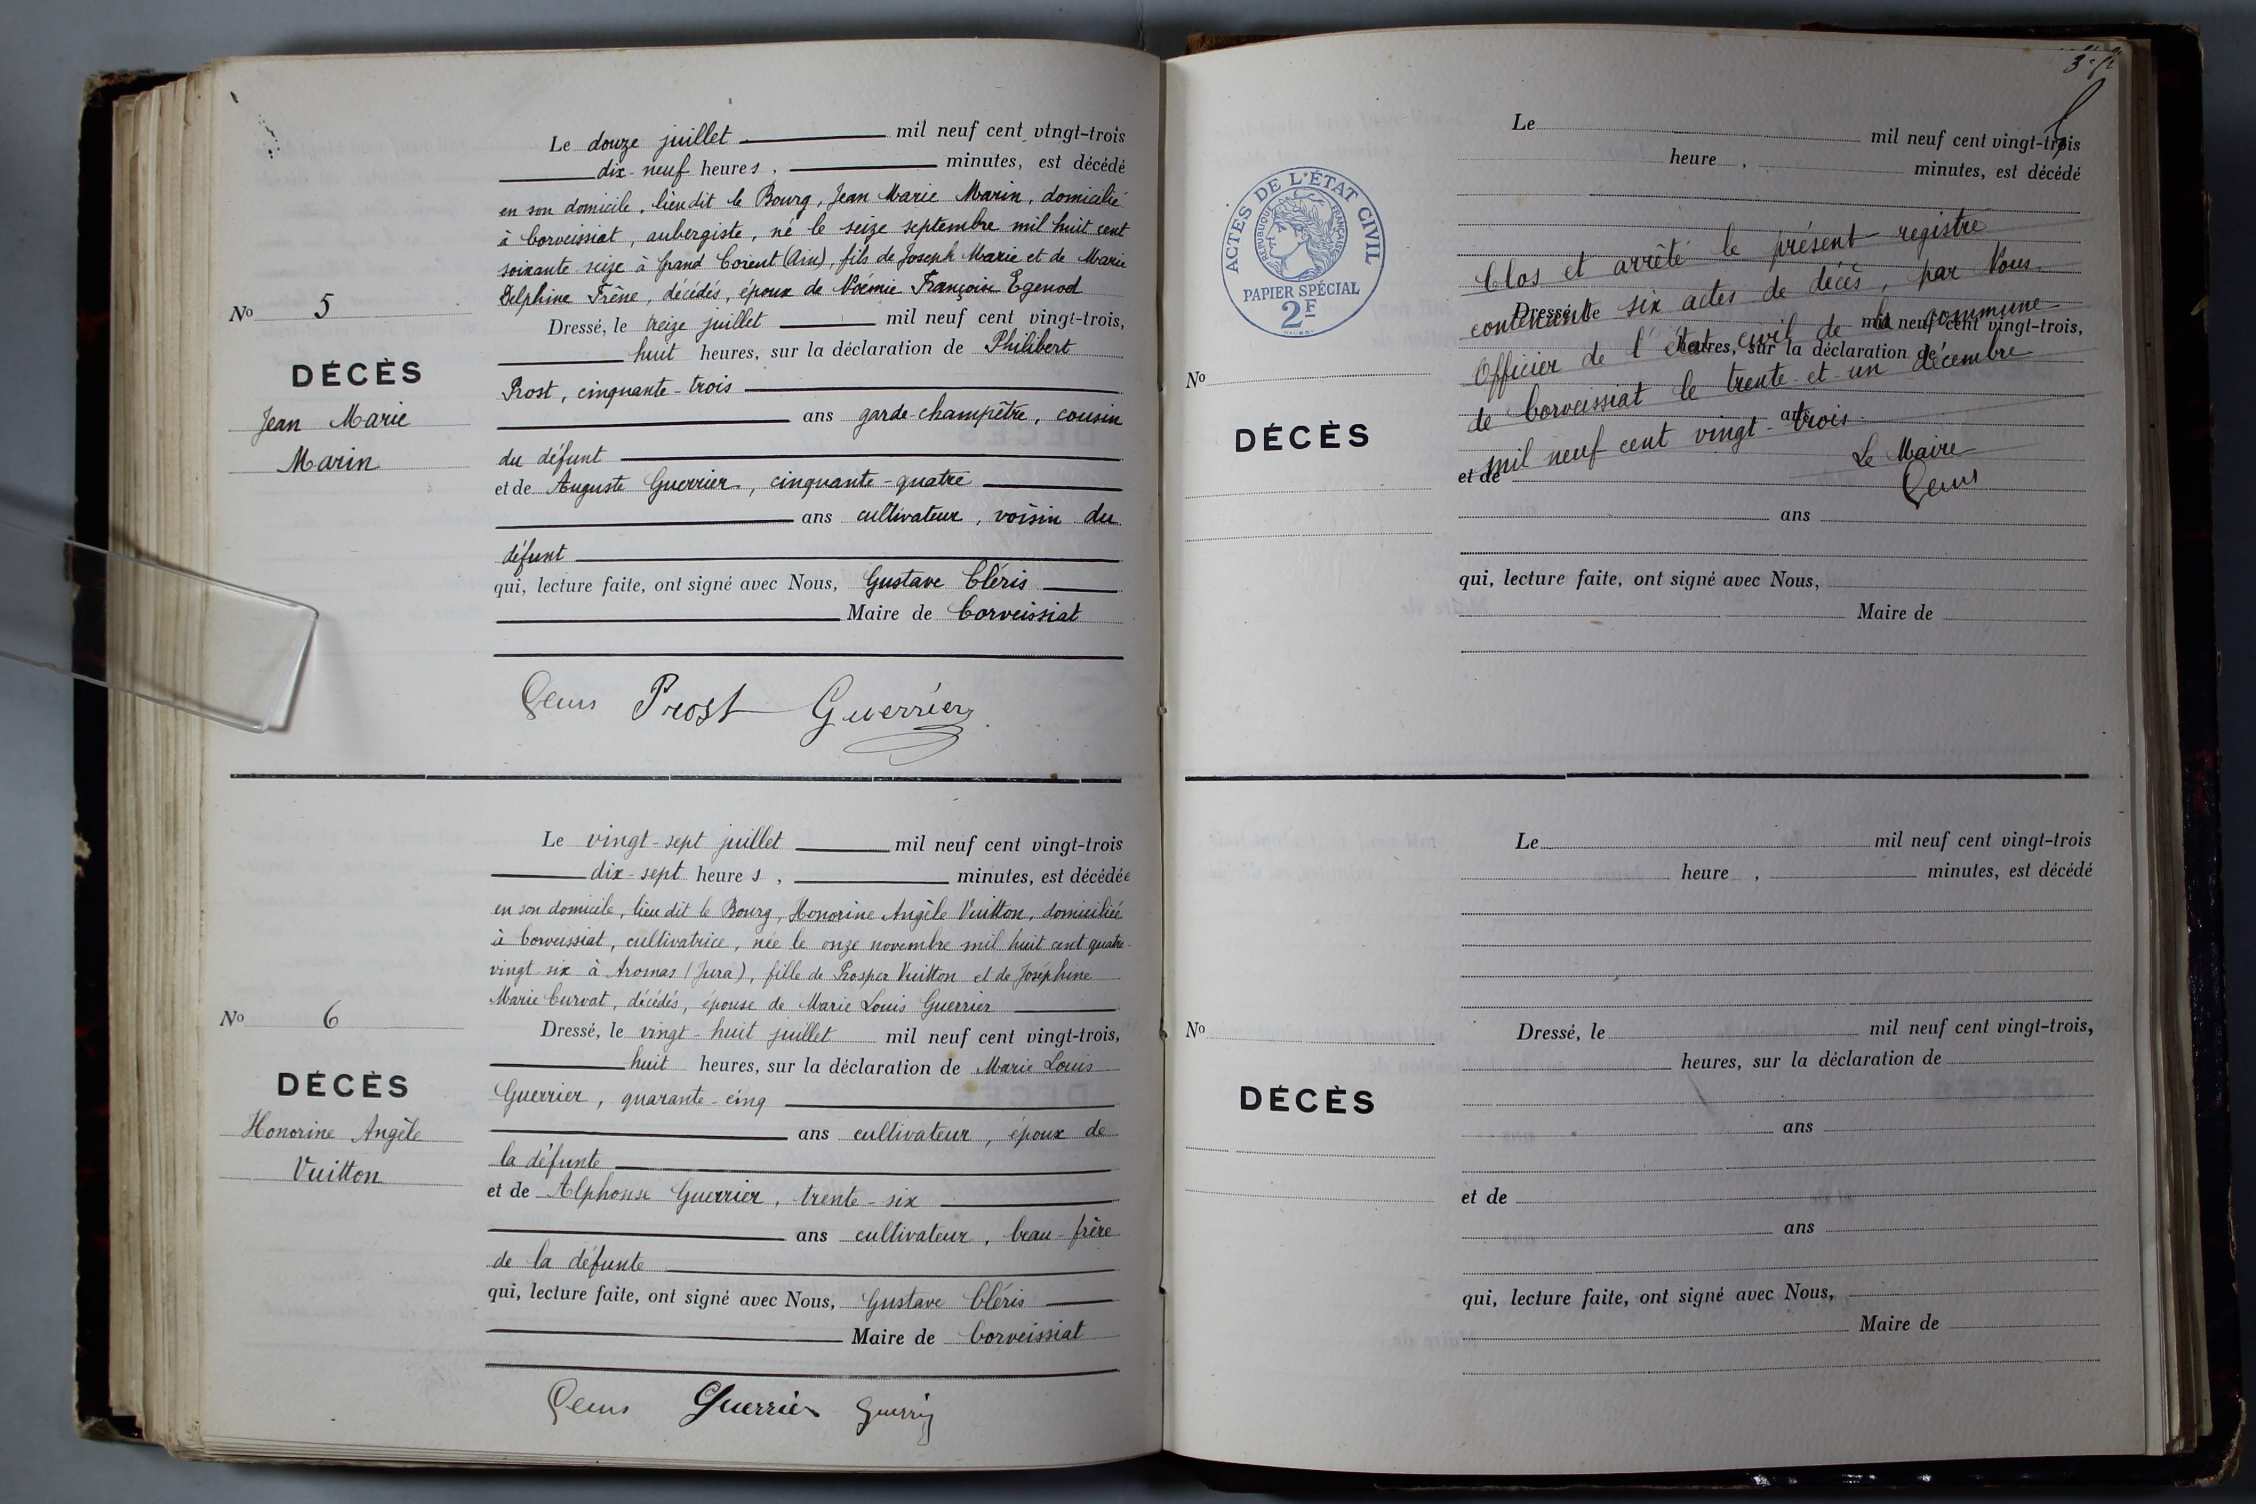 Le douze juillet mil neuf cent vingt-trois
dix-neuf heures, minutes, est décédé
en son domicile, lieu dit le Bourg, Jean Marie Marin, domicilié
à Corveissiat, aubergiste, né le seize septembre mil huit cent
soixante seize à Grand Corent (Ain), fils de Joseph Marie et de Marie
Delphine Frêne, décédés, époux de Noémie Françoise Egenod
No 5
Dressé, le treize juillet mil neuf cent vingt-trois,
huit heures, sur la déclaration de Philibert
DÉCÈS
Prost, cinquante-trois
Jean Marie
ans garde-champêtre, cousin
Marin
du défunt
et de Auguste Guerrier, cinquante-quatre
ans cultivateur, voisin du
défunt
qui, lecture faite, ont signé avec Nous, Gustave Cléris
Maire de Corveissiat
Prost Guerrier
Le vingt-sept juillet mil neuf cent vingt-trois
dix-sept heures, minutes, est décédée
en son domicile, lieu dit le Bourg, Honorine Angèle Vuitton, domiciliée
à Corveissiat, cultivatrice, née le onze novembre mil huit cent quatre-
vingt six à Aromas (Jura), fille de Prosper Vuitton et de Joséphine
Marie Curvat, décédés, épouse de Marie Louis Guerrier
No 6
Dressé, le vingt-huit juillet mil neuf cent vingt-trois,
huit heures, sur la déclaration de Marie Louis
DÉCÈS
Guerrier, quarante-cinq
Honorine Angèle
ans cultivateur, époux de
Vuitton
la défunte
et de Alphonse Guerrier, trente-six
ans cultivateur, beau-frère
de la défunte
qui, lecture faite, ont signé avec Nous, Gustave Cléris
Maire de Corveissiat
Guerrier
ACTES DE L'ÉTAT CIVIL
RÉPUBLIQUE FRANÇAISE
PAPIER SPÉCIAL
2F
Le mil neuf cent vingt-trois
heure, minutes, est décédé
Clos et arrêté le présent registre
contenant six actes de décès, par Nous
Officier de l'état civil de la commune
de Corveissiat le trente-et-un décembre
mil neuf cent vingt-trois
Le Maire
Dressé, le mil neuf cent vingt-trois,
heures, sur la déclaration de
No
DÉCÈS
ans
et de
ans
qui, lecture faite, ont signé avec Nous,
Maire de
Le mil neuf cent vingt-trois
heure, minutes, est décédé
No
Dressé, le mil neuf cent vingt-trois,
heures, sur la déclaration de
DÉCÈS
ans
et de
ans
qui, lecture faite, ont signé avec Nous,
Maire de